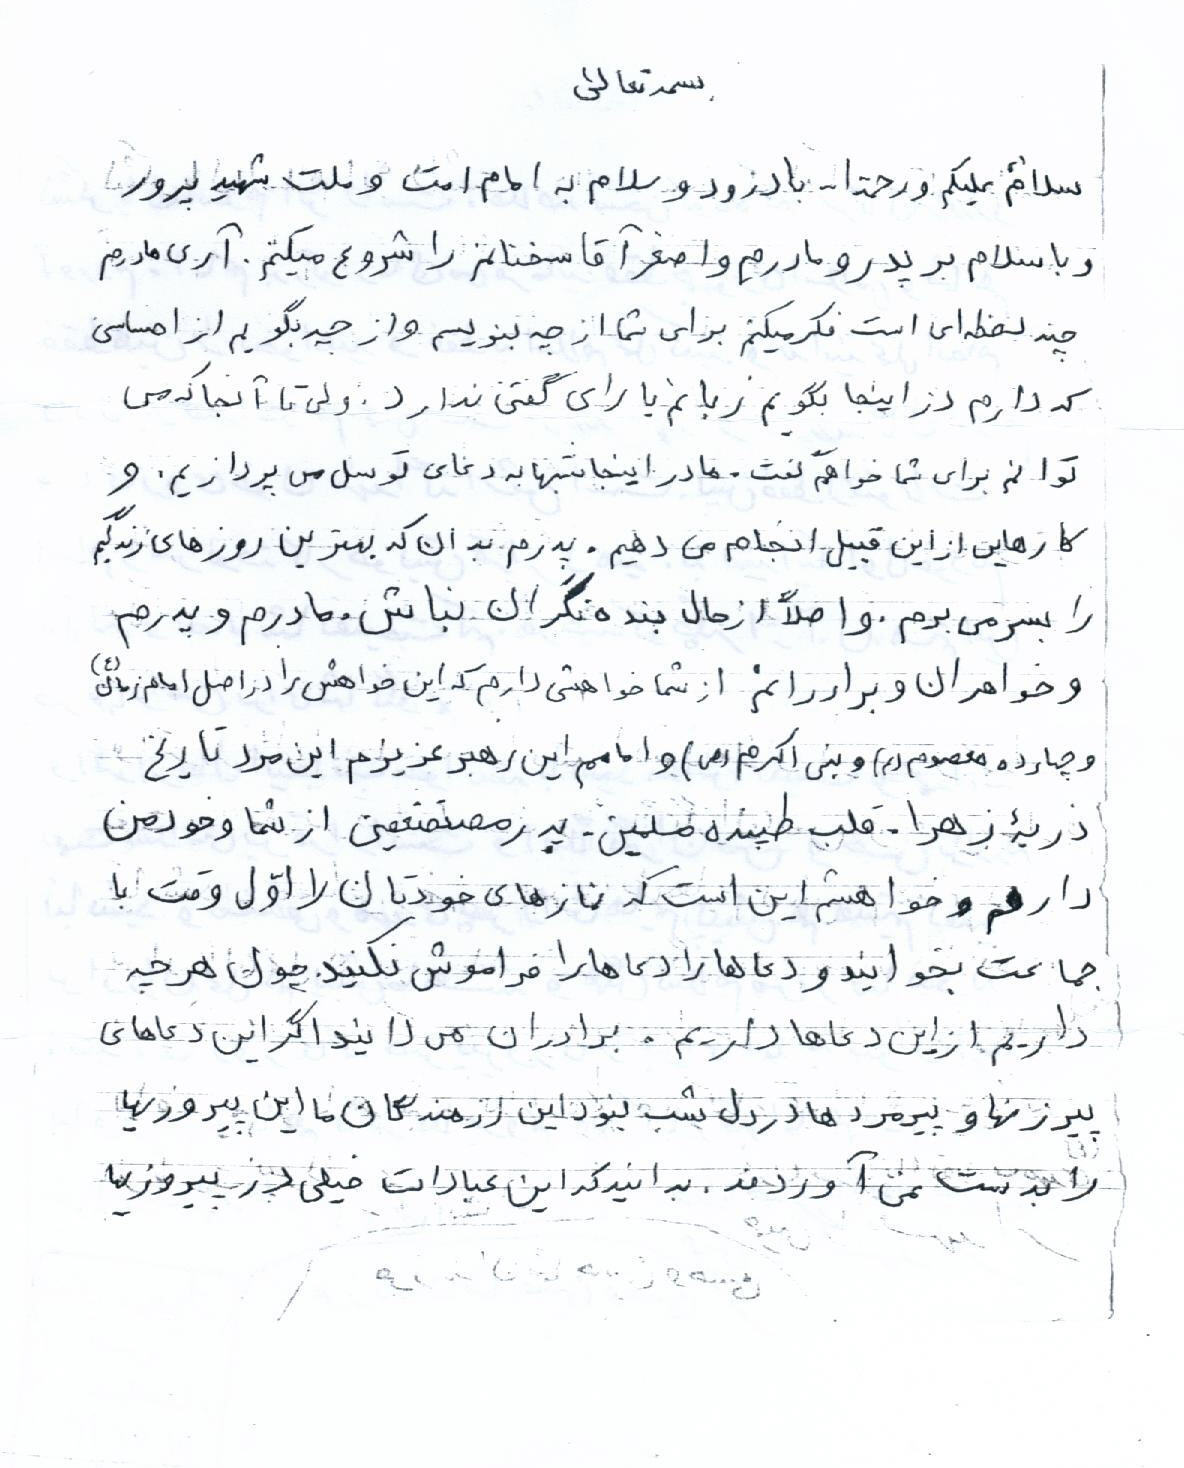 بسمه تعالی
سلامٌ علیکم و رحمة ا... با درود و سلام به امام امت و ملت شهید پرور
و با سلام بر پدر و مادرم و اصغر آقا سخنانم را شروع میکنم. آری مادرم
چند لحظه‌ای است فکر میکنم برای شما از چه بنویسم و از چه بگویم از احساسی
که دارم در اینجا بگویم زبانم یارای گفتن ندارد. ولی تا آنجا که می
توانم برای شما خواهم گفت. مادر اینجا شبها به دعای توسل می پردازیم. و
کارهایی از این قبیل انجام می دهیم. پدرم بدان که بهترین روزهای زندگیم
را بسر می برم. و اصلاً از حال بنده نگران نباش. مادرم و پدرم
و خواهران و برادرانم از شما خواهشی دارم که این خواهش را در اصل امام زمان (ع)
و چهارده معصوم (ع) و نبی اکرم (ص) و امامم این رهبر عزیزم این مرد تاریخ
ذریهٔ زهرا - قلب طپنده مسلمین - پدر مستضعفین از شما و خود من
دارم و خواهشم این است که نمازهای خودتان را اوّل وقت با
جماعت بخوانید و دعاها را دعاها را فراموش نکنید چون هر چه
داریم از این دعاها داریم. برادران می دانید اگر این دعاهای
پیرزنها و پیرمردها در دل شب نبود این رزمندگان ما این پیروزیها
را بدست نمی آوردند. بدانید که این عبادات خیلی از پیروزیها